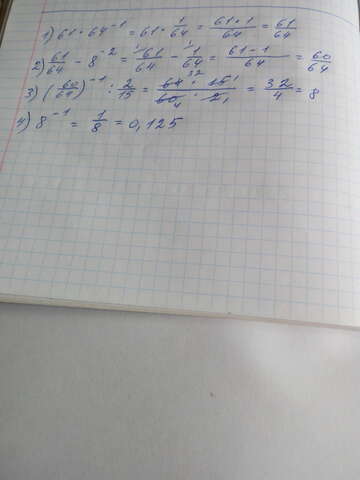 1) 61 · 64⁻¹ = 61 · 1/64 = 61·1/64 = 61/64
2) 61/64 - 8⁻² = 61/64 - 1/64 = 61-1/64 = 60/64
3) (60/64)⁻¹ : 2/15 = 64 · 15/60 · 2 = 32/4 = 8
4) 8⁻¹ = 1/8 = 0,125